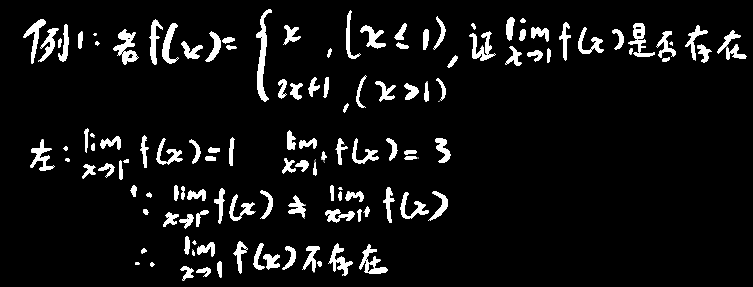 例1: 若f(x)= { x ,(x≤1), 证 lim x→1 f(x)是否存在
2x+1 ,(x>1)
左: lim x→1⁻ f(x)=1 lim x→1⁺ f(x)=3
∵ lim x→1⁻ f(x) ≠ lim x→1⁺ f(x)
∴ lim x→1 f(x)不存在